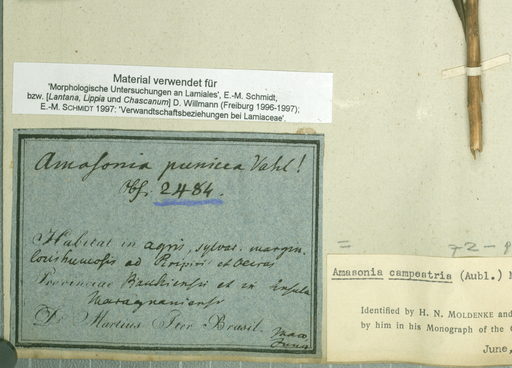 Material verwendet für
'Morphologische Untersuchungen an Lamiales', E.-M. Schmidt,
bzw. [Lantana, Lippia und Chascanum] D. Willmann (Freiburg 1996-1997);
E.-M. SCHMIDT 1997: 'Verwandtschaftsbeziehungen bei Lamiaceae'.
Amasonia punicea Vahl!
Obs. 2484.
Habitat in agris, sylvar. margin.
ad Piripiri et Oeiras
Provinciae et in Insula
Maragnaniensi
D. Martius Iter Brasil.
=
72-9
Amasonia campestris (Aubl.)
Identified by H. N. MOLDENKE and
by him in his Monograph of the
June,